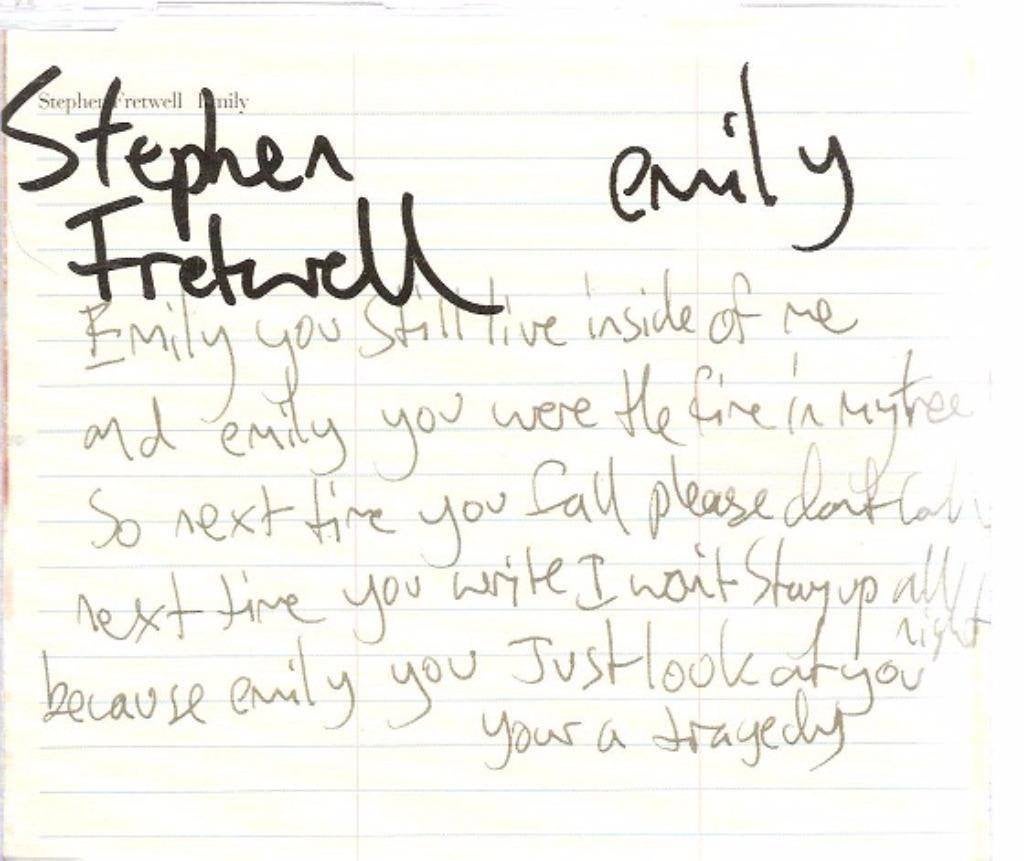 Stephen Fretwell Emily
Stephen emily
Fretwell
Emily you still live inside of me
and emily you were the fire in my tree
So next time you fall please dont call
next time you write I won't stay up all
night
because emily you Just look at you
your a tragedy